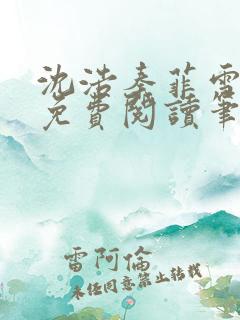 沈浩秦菲雪
免費閱讀筆
雷阿倫
未經同意禁止轉載